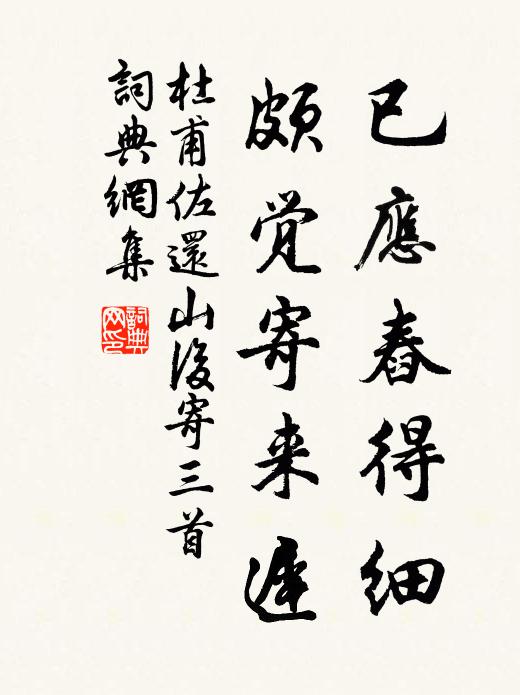 已應舂得細
頗觉寄来遲
杜甫佐還山後寄三首
詞典網集
詞典网印